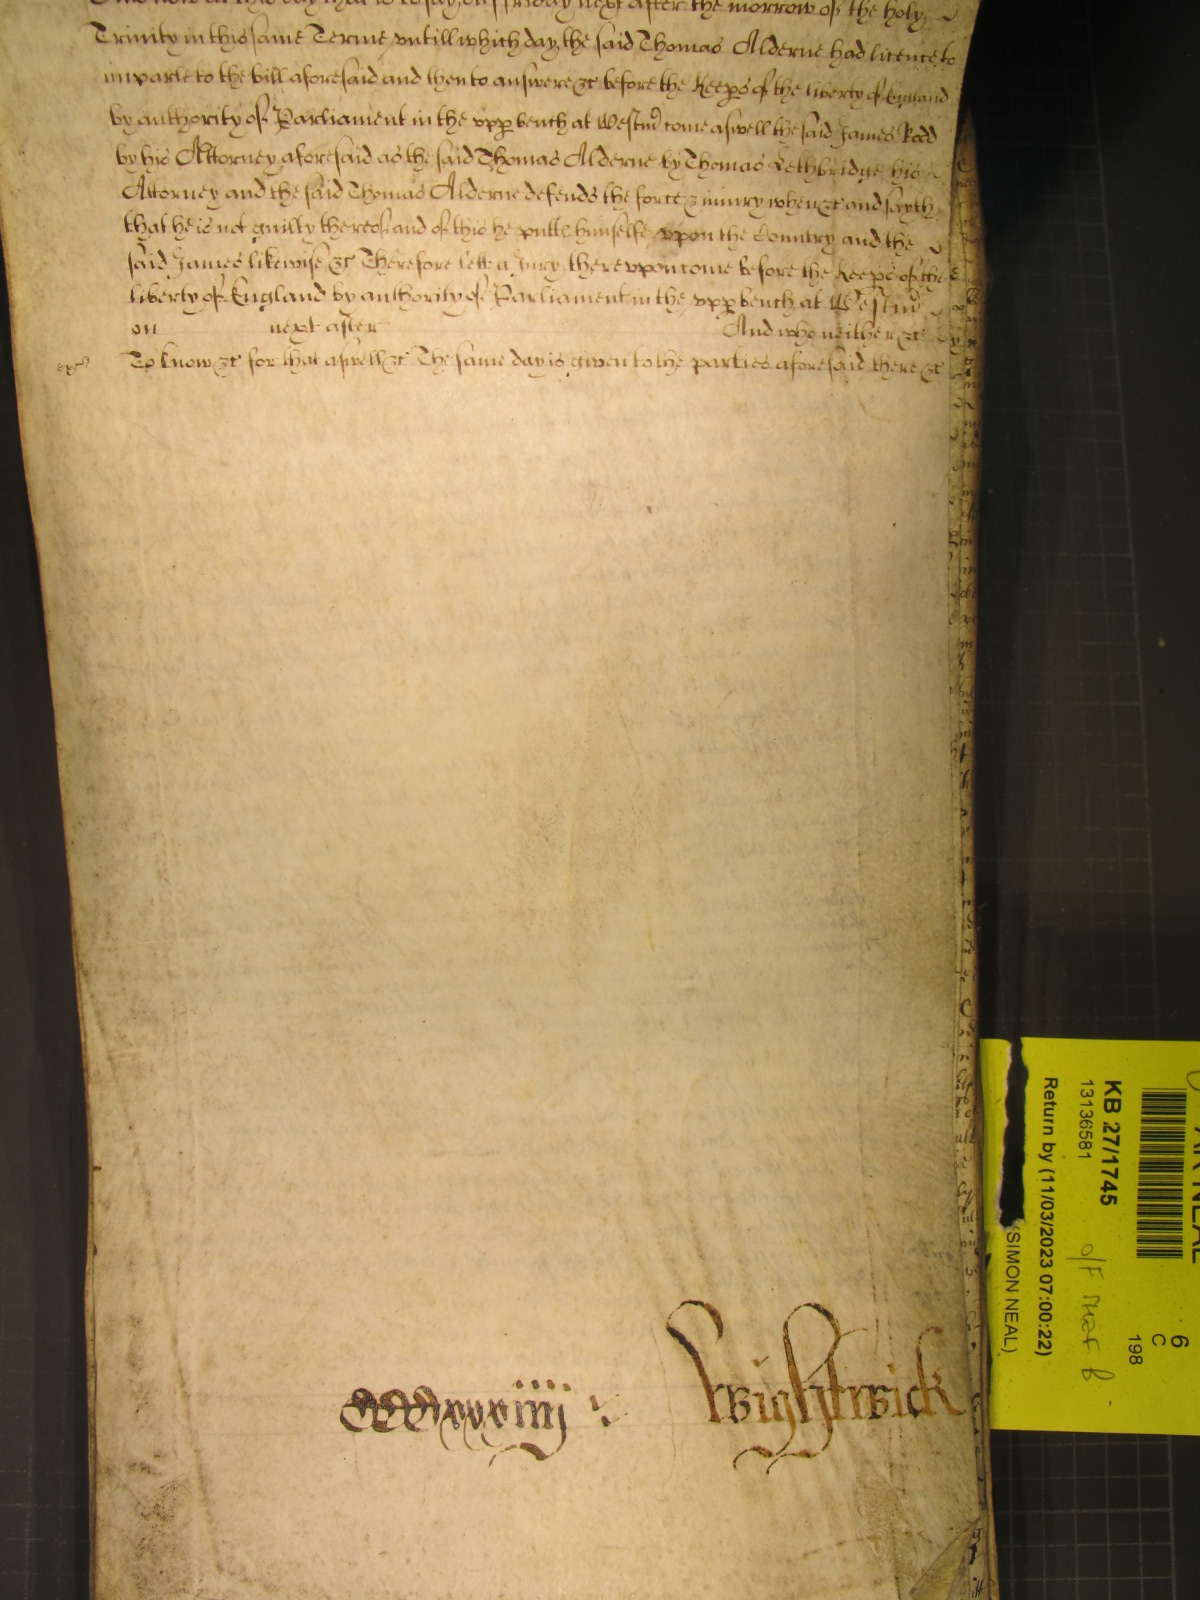 And now at this day that is to say on Friday next after the morrow of the holy
Trinity in this same Terme untill which day the said Thomas Alderne had licence to
imparle to the bill aforesaid and then to answere &c before the Keeps of the liberty of England
by authority of Parliament in the upp bench at Westm come aswell the said James Rodd
by his Attorney aforesaid as the said Thomas Alderne by Thomas Lethbridge his
Attorney and the said Thomas Alderne defends the force & iniury when &c and sayth
that he is not guilty thereof and of this he putts himselfe vpon the Countrey and the
said James likewise &c Therefore lett a Jury thereupon come before the Keeps of the
liberty of England by authority of Parliament in the upp bench at Westm
on next after And who neither &c
To know &c for that aswell &c The same day is given to the parties aforesaid there &c
CCCxxxiiij Wightwick
KB 27/1745
13136581
Return by (11/03/2023 07:00:22)
(SIMON NEAL)
6
C
198